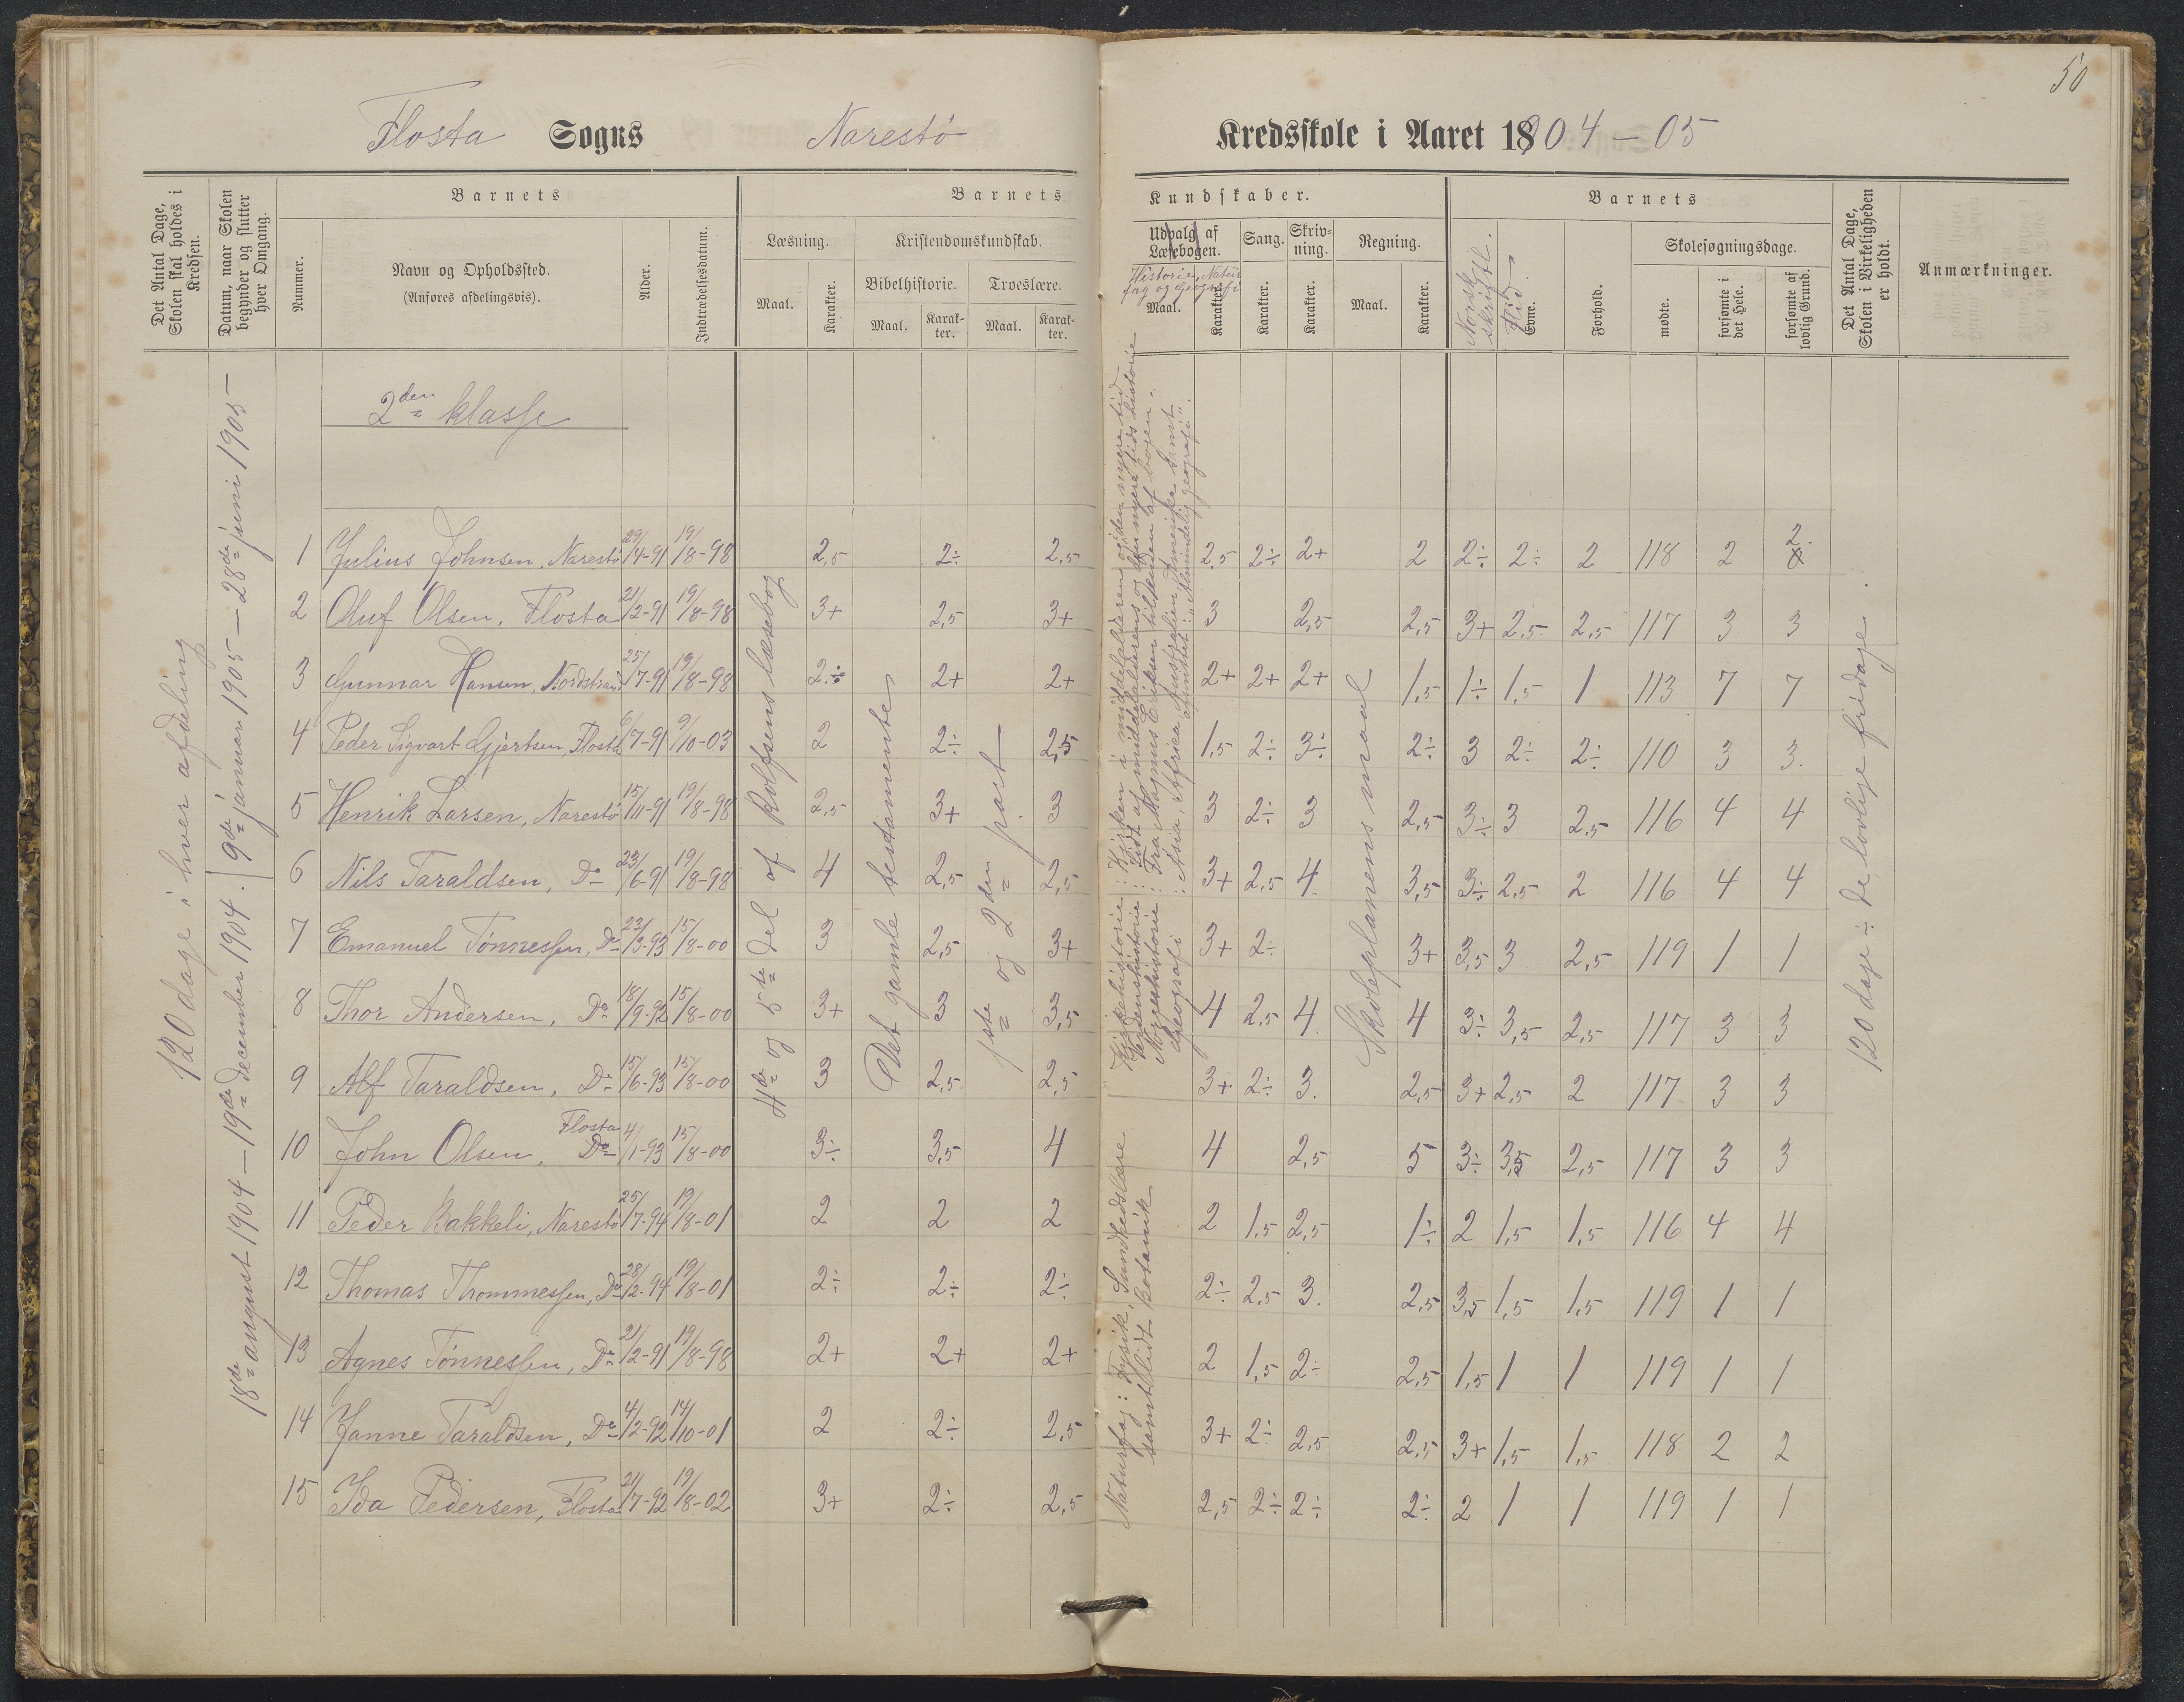 50
Flosta Sogns Narestö Kredsskole i Aaret 1904 — 05
Det Antal Dage, Skolen skal holdes i Kredsen.
Datum, naar Skolen begynder og slutter hver Omgang.
Barnets
Nummer.
Navn og Opholdssted.
(Anføres afdelingsvis).
Alder.
Indtrædelsesdatum.
Barnets Kundskaber.
Læsning.
Maal. Karakter.
Kristendomskundskab.
Bibelhistorie. Troeslære.
Maal. Karakter. Maal. Karakter.
Udvalg af Læsebogen.
Historie, Naturfag og Geografi
Maal. Karakter.
Sang.
Karakter.
Skrivning.
Karakter.
Regning.
Maal. Karakter.
Barnets
Norsk skriftl.
Flid
Evne.
Forhold.
Skolesøgningsdage.
mødte.
forsømte i det Hele.
forsømte af lovlig Grund.
Det Antal Dage, Skolen i Virkeligheden er holdt.
Anmærkninger.
120 dage i hver afdeling
18de august 1904 — 19de december 1904. | 9de januar 1905 — 28de juni 1905 —
2den klasse
4de og 5te del af Rolfsens læsebog
Det gamle testamente
1ste og 2den part
Kirkehistorie: Kirken i middelalderen og den nyere tid
Verdenshistorie: Lidt af middelalderens og den nyere tids historie
Norgeshistorie: Fra Magnus Eriksen til enden af bogen.
Geografi: Asia, Afrika, Australien, Amerika samt afsnittet: "Almindelig geografi".
Naturfag: Fysik, Sundhedslære samt lidt Botanik
Skoleplanens maal
120 dage ÷ de lovlige fridage.
1 Julius Johnsen, Narestö 29/4-91 19/8-98 2,5 2÷ 2,5 2,5 2÷ 2+ 2 2÷ 2÷ 2 118 2 2.
2 Oluf Olsen, Flosta 21/2-91 19/8-98 3+ 2,5 3+ 3 2,5 2,5 3+ 2,5 2,5 117 3 3
3 Gunnar Hansen, Nordstrand 25/7-91 19/8-98 2÷ 2+ 2+ 2+ 2+ 2+ 1,5 1÷ 1,5 1 113 7 7
4 Peder Sigvart Gjertsen, Flosta 6/7-91 9/10-03 2 2÷ 2,5 1,5 2÷ 3÷ 2÷ 3 2÷ 2÷ 110 3 3.
5 Henrik Larsen, Narestö 15/11-91 19/8-98 2,5 3+ 3 3 2÷ 3 2,5 3÷ 3 2,5 116 4 4
6 Nils Taraldsen, Do 23/6-91 19/8-98 4 2,5 2,5 3+ 2,5 4. 3,5 3÷ 2,5 2 116 4 4
7 Emanuel Tönnessen, Do 23/3-93 15/8-00 3 2,5 3+ 3+ 2÷ 3+ 3,5 3 2,5 119 1 1
8 Thor Andersen, Do 18/9-92 15/8-00 3+ 3 3,5 4 2,5 4. 4 3÷ 3,5 2,5 117 3 3
9 Alf Taraldsen, Do 15/6-93 15/8-00 3 2,5 2,5 3+ 2÷ 3. 2,5 3+ 2,5 2 117 3 3
10 John Olsen, Flosta Do 4/1-93 15/8-00 3÷ 3,5 4 4 2,5 5 3÷ 3,5 2,5 117 3 3
11 Peder Bakkeli, Narestö 25/7-94 19/8-01 2 2 2 2 1,5 2,5 1÷ 2 1,5 1,5 116 4 4
12 Thomas Thommessen, Do 28/2-94 19/8-01 2÷ 2÷ 2÷ 2÷ 2,5 3. 2,5 3,5 1,5 1,5 119 1 1
13 Agnes Tönnessen, Do 21/2-91 19/8-98 2+ 2+ 2+ 2 1,5 2÷ 2,5 1,5 1 1 119 1 1
14 Janne Taraldsen, Do 4/2-92 14/10-01 2 2÷ 2,5 3+ 2÷ 2,5 2,5 3+ 1,5 1,5 118 2 2
15 Ida Pedersen, Flosta 21/7-92 19/8-02 3+ 2÷ 2,5 2,5 2÷ 2÷ 2÷ 2 1 1 119 1 1